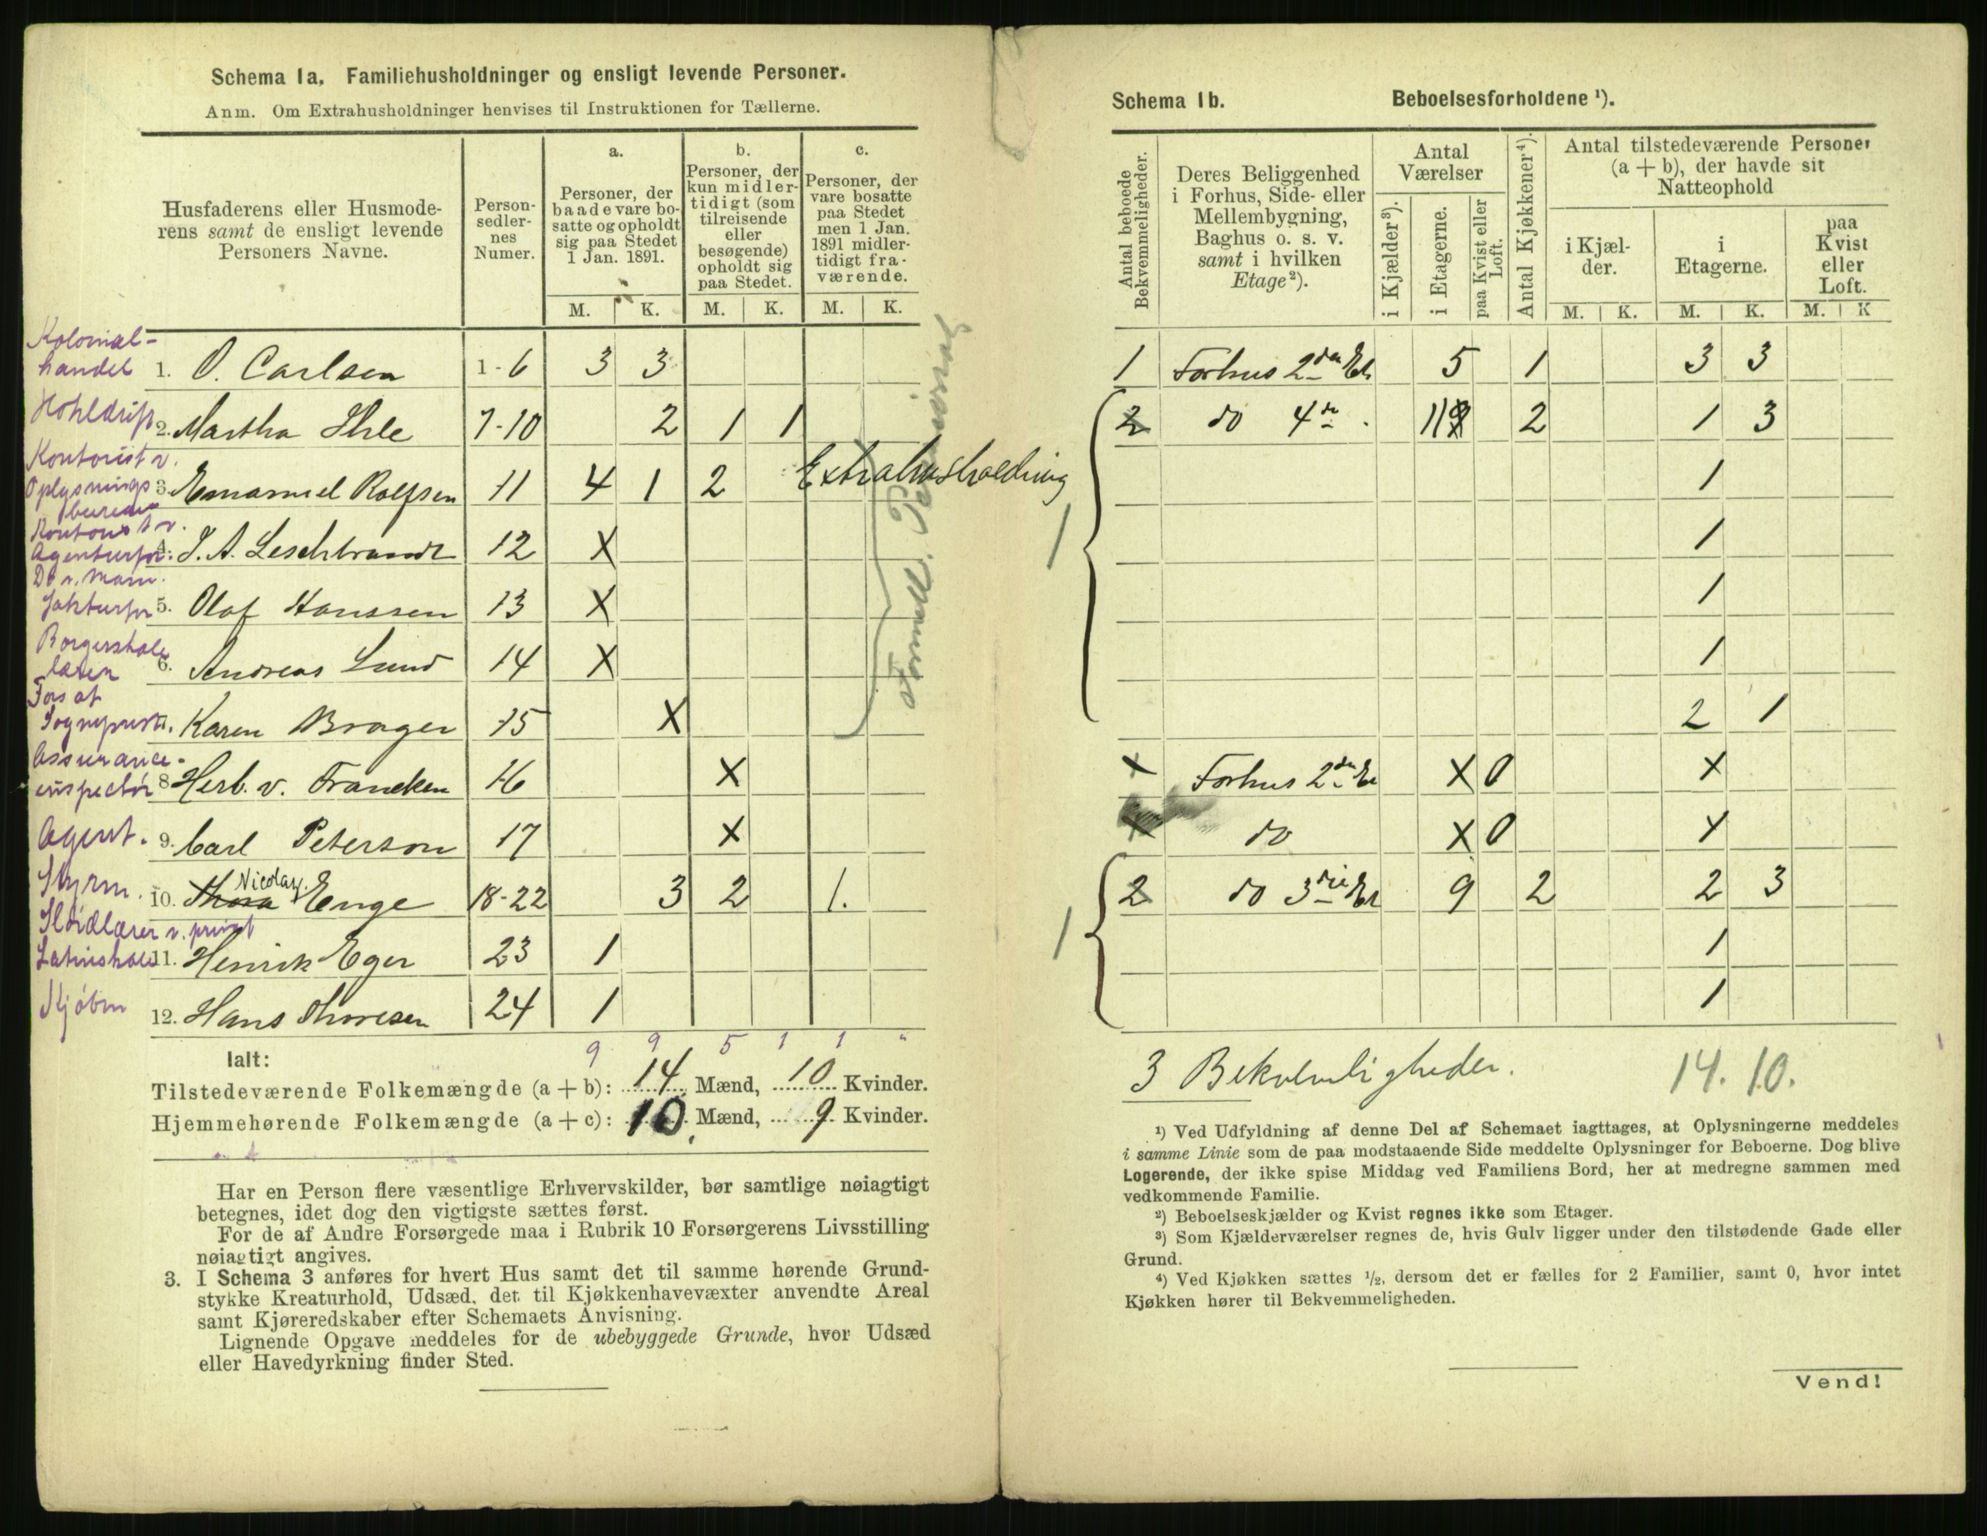 Schema 1a. Familiehusholdninger og ensligt levende Personer.
Anm. Om Extrahusholdninger henvises til Instruktionen for Tællerne.
Husfaderens eller Husmoderens samt de ensligt levende Personers Navne.
Personsedlernes Numer.
a.
Personer, der baade vare bosatte og opholdt sig paa Stedet 1 Jan. 1891.
b.
Personer, der kun midlertidigt (som tilreisende eller besøgende) opholdt sig paa Stedet.
c.
Personer, der vare bosatte paa Stedet men 1 Jan. 1891 midlertidigt fraværende.
M. K. M. K. M. K.
Kolonialhandel 1. O. Carlsen 1-6 3 3
Hoteldrift 2. Martha Ihle 7-10 2 1 1
Kontorist v. Oplysningsbureau 3. Emanuel Rolfsen 11 4 1 2 Extrahusholdning
Kontorist v. Agenturfor. 4. J. A. Leschbrandt 12 X
Do v. Manufakturfor 5. Olaf Hanssen 13 X
Borgerskolelærer 6. Andreas Lund 14 X
Fors af Sogneprest 7. Karen Brager 15 X
Assuranceinspectør 8 Herb. v. Francken 16 X
Agent. 9. Carl Peterson 17 X
Styrm. 10. Thora Nicolay. Enge 18-22 3 2 1.
Sløidlærer v. privat Latinskole 11. Henrik Eger 23 1
Kjøbm 12. Hans Thoresen 24 1
Pensionat
9 9 5 1 1 "
Ialt:
Tilstedeværende Folkemængde (a + b): 14 Mænd, 10 Kvinder.
Hjemmehørende Folkemængde (a + c): 10 Mænd, 9 Kvinder.
Har en Person flere væsentlige Erhvervskilder, bør samtlige nøiagtigt
betegnes, idet dog den vigtigste sættes først.
For de af Andre Forsørgede maa i Rubrik 10 Forsørgerens Livsstilling
nøiagtigt angives.
3. I Schema 3 anføres for hvert Hus samt det til samme hørende Grund-
stykke Kreaturhold, Udsæd, det til Kjøkkenhavevæxter anvendte Areal
samt Kjøreredskaber efter Schemaets Anvisning.
Lignende Opgave meddeles for de ubebyggede Grunde, hvor Udsæd
eller Havedyrkning finder Sted.
Schema 1b. Beboelsesforholdene ¹).
Antal beboede Bekvemmeligheder.
Deres Beliggenhed i Forhus, Side- eller Mellembygning, Baghus o. s. v. samt i hvilken Etage²).
Antal Værelser
i Kjælder³).
i Etagerne.
paa Kvist eller Loft.
Antal Kjøkkener⁴).
Antal tilstedeværende Personer (a + b), der havde sit Natteophold
i Kjælder.
i Etagerne.
paa Kvist eller Loft.
M. K. M. K. M. K
1 Forhus 2den Et 5 1 3 3
2 do 4de 11 2 1 3
1
1 1
1
1
2 1
x Forhus 2den Et X 0 x
x do X 0 x
2 do 3die Et 9 2 2 3
1 1
1
3 Bekvemligheder. 14. 10.
¹) Ved Udfyldning af denne Del af Schemaet iagttages, at Oplysningerne meddeles
i samme Linie som de paa modstaaende Side meddelte Oplysninger for Beboerne. Dog blive
Logerende, der ikke spise Middag ved Familiens Bord, her at medregne sammen med
vedkommende Familie.
²) Beboelseskjælder og Kvist regnes ikke som Etager.
³) Som Kjælderværelser regnes de, hvis Gulv ligger under den tilstødende Gade eller
Grund.
⁴) Ved Kjøkken sættes ½, dersom det er fælles for 2 Familier, samt 0, hvor intet
Kjøkken hører til Bekvemmeligheden.
Vend!